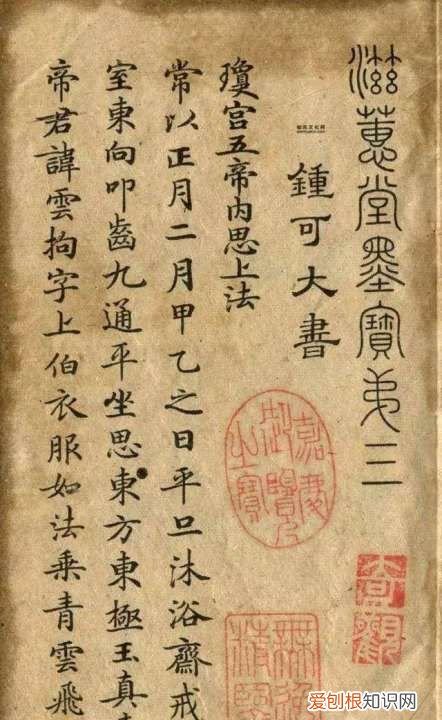 滋蕙堂墨寶弟三
鍾可大書
瓊宮五帝內思上法
常以正月二月甲乙之日平旦沐浴齋戒
室東向叩齒九通平坐思東方東極玉真
帝君諱雲拘字上伯衣服如法乘青雲飛
嘉慶御覽之寶
大觀
爱刨根知识网